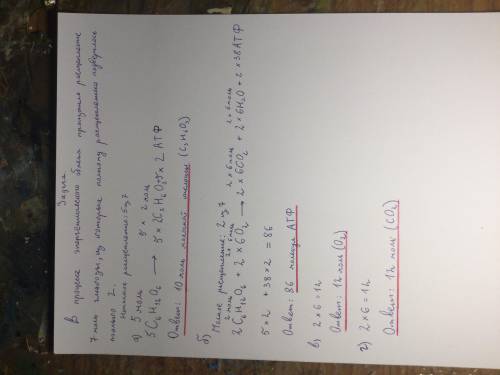 Задача
В процессе энергетического обмена произошло расщепление
7 моль глюкозы, из которых полному расщеплению подверглось
только 2.
Неполное расщепление: 5 из 7
а) 5 моль 5 × 2 моль
5C₆H₁₂O₆ → 5 × 2C₃H₆O₃ 5 × 2 АТФ
Ответ: 10 моль молочной кислоты (C₃H₆O₃)
б) Полное расщепление: 2 из 7
2 моль 2 × 6 моль 2 × 6 моль 2 × 6 моль
2C₆H₁₂O₆ + 2 × 6O₂ → 2 × 6CO₂ + 2 × 6H₂O + 2 × 38 АТФ
5 × 2 + 38 × 2 = 86
Ответ: 86 молекул АТФ
в) 2 × 6 = 12
Ответ: 12 моль (O₂)
г) 2 × 6 = 12
Ответ: 12 моль (CO₂)